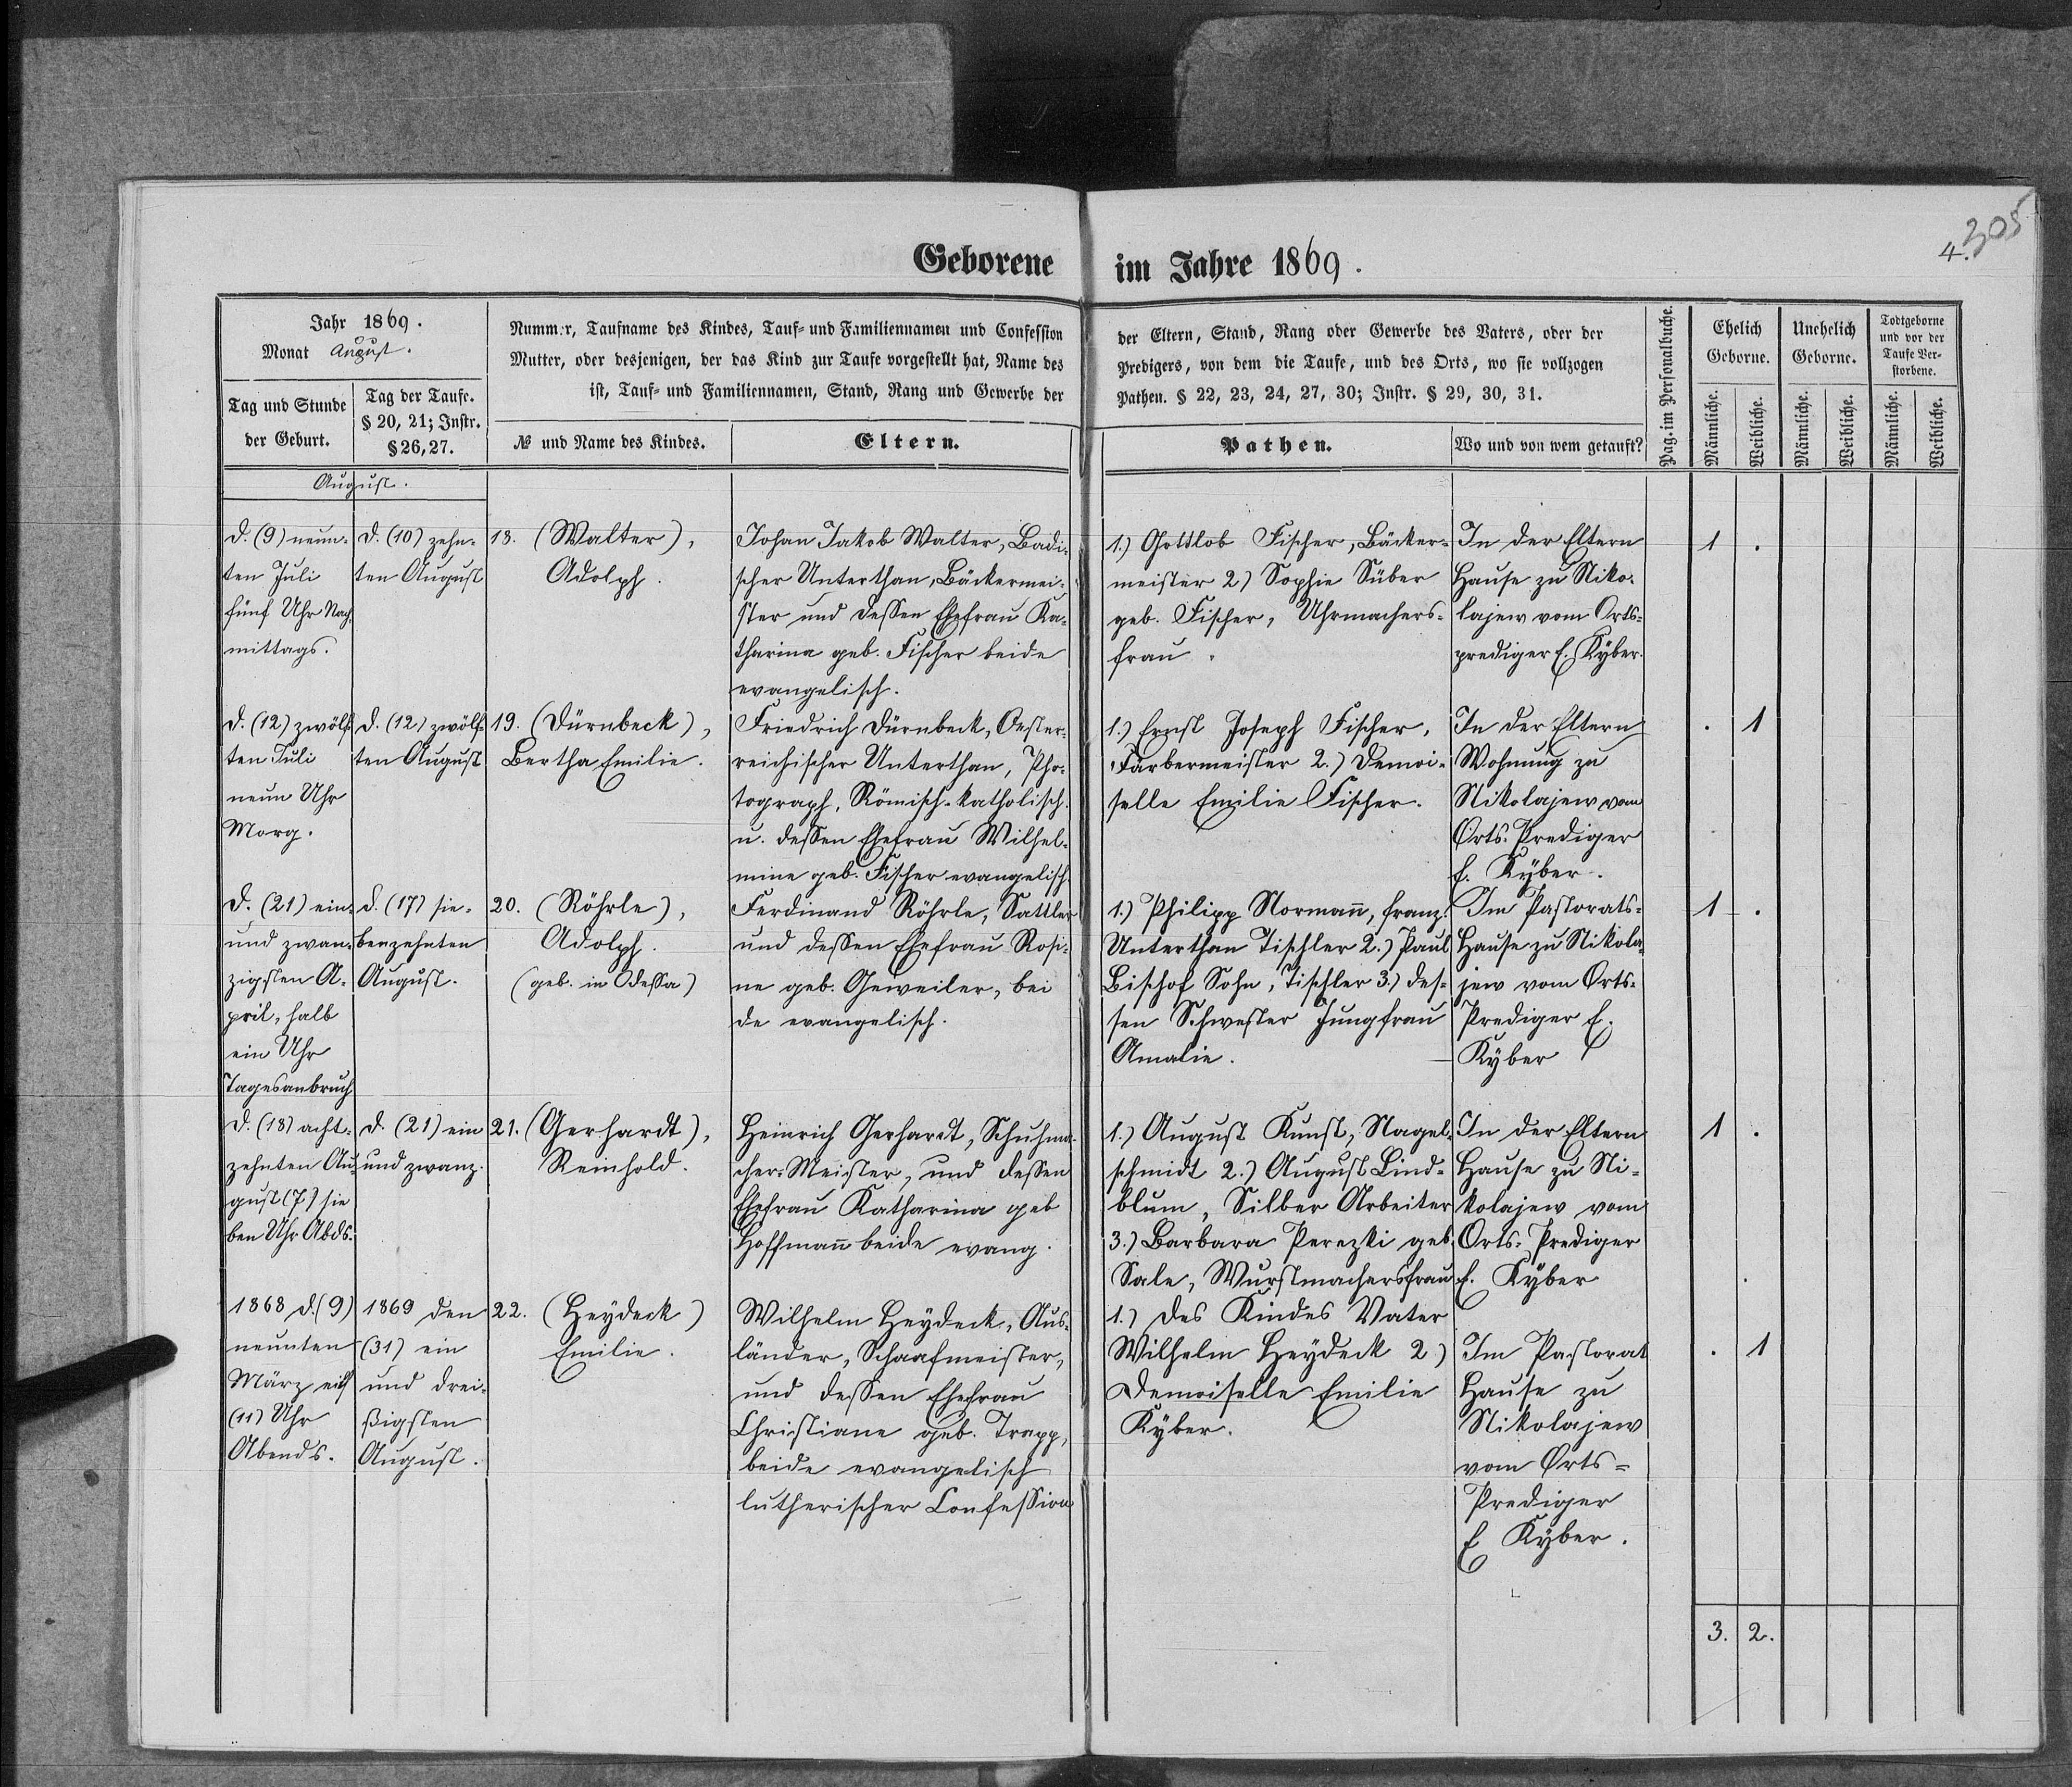 305
4.
Geborene im Jahre 1869.
Jahr 1869.
Monat August.
Tag und Stunde
der Geburt.
Tag der Taufe.
§ 20, 21; Instr.
§ 26, 27.
Nummer, Taufname des Kindes, Tauf- und Familiennamen und Confession
Mutter, oder desjenigen, der das Kind zur Taufe vorgestellt hat, Name des
ist, Tauf- und Familiennamen, Stand, Rang und Gewerbe der
№ und Name des Kindes.
Eltern.
der Eltern, Stand, Rang oder Gewerbe des Vaters, oder der
Predigers, von dem die Taufe, und des Orts, wo sie vollzogen
Pathen. § 22, 23, 24, 27, 30; Instr. § 29, 30, 31.
Pathen.
Wo und von wem getauft?
Pag. im Personalbuche.
Ehelich
Geborne.
Unehelich
Geborne.
Todtgeborne
und vor der
Taufe Ver-
storbene.
Männliche.
Weibliche.
Männliche.
Weibliche.
Männliche.
Weibliche.
August.
d. (9) neun-
ten Juli
fünf Uhr Nach-
mittags.
d. (10) zehn-
ten August
18. (Walter),
Adolph.
Johan Jakob Walter, Badi-
scher Unterthan, Bäckermei-
ster und dessen Ehefrau Ka-
tharina geb. Fischer beide
evangelisch.
1.) Gottlob Fischer, Bäcker-
meister 2) Sophie Süber
geb. Fischer, Uhrmachers-
frau.
In der Eltern
Hause zu Niko-
lajew vom Orts-
prediger E. Kÿber.
1 .
d. (12) zwölf-
ten Juli
neun Uhr
Morg.
d. (12) zwölf-
ten August
19. (Dürnbeck),
Bertha Emilie.
Friedrich Dürnbeck, Oester-
reichischer Unterthan, Pho-
tograph, Römisch-katholisch.
u. dessen Ehefrau Wilhel-
mine geb. Fischer evangelisch.
1.) Ernst Joseph Fischer,
Färbermeister 2.) Demoi-
selle Emilie Fischer.
In der Eltern
Wohnung zu
Nikolajew vom
Orts-Prediger
E. Kÿber.
. 1
d. (21) ein-
und zwan-
zigsten A-
pril, halb
ein Uhr
Tagesanbruch
d. (17) sie-
benzehnten
August.
20. (Röhrle),
Adolph.
(geb. in Odessa)
Ferdinand Röhrle, Sattler
und dessen Ehefrau Rosi-
ne geb. Geweiler, bei
de evangelisch.
1.) Philipp Normañ, franz.
Unterthan Tischler 2.) Paul
Bischof Sohn, Tischler 3.) des-
sen Schwester Jungfrau
Amalie.
Im Pastorats-
Hause zu Nikola-
jew vom Orts-
Prediger E.
Kÿber
1 .
d. (18) acht-
zehnten Au-
gust (7) sie
ben Uhr Abds.
d. (21) ein
und zwanz.
21. (Gerhardt),
Reinhold.
Heinrich Gerhardt, Schuhma-
cher-Meister, und dessen
Ehefrau Katharina geb
Hoffmañ beide evang.
1.) August Kunst, Nagel-
schmidt 2.) August Lind-
blum, Silber Arbeiter
3.) Barbara Perezki geb.
Sale, Wurstmachersfrau
In der Eltern
Hause zu Ni-
kolajew vom
Orts-Prediger
E. Kÿber
1 .
1868 d. (9)
neunten
März eilf
(11) Uhr
Abends.
1869 den
(31) ein
und drei-
ßigsten
August.
22. (Heydeck)
Emilie.
Wilhelm Heydeck, Aus-
länder, Schaafmeister,
und dessen Ehefrau
Christiane geb. Trapp,
beide evangelisch
lutherischer Confession
1.) des Kindes Vater
Wilhelm Heydeck 2)
Demoiselle Emilie
Kÿber.
Im Pastorat
Hause zu
Nikolajew
vom Orts-
Prediger
E Kÿber.
. 1
3. 2.